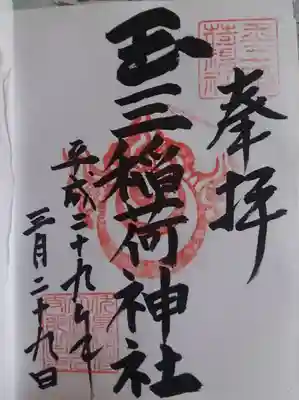 奉拝
玉三稲荷神社
平成二十九年
三月二十九日